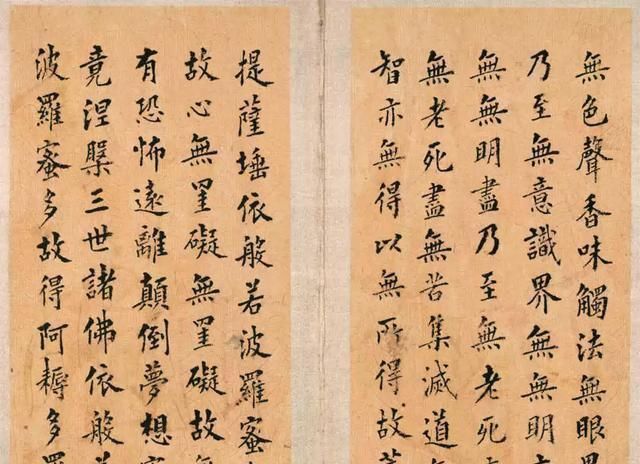 無色聲香味觸法無眼界
乃至無意識界無無明亦
無無明盡乃至無老死亦
無老死盡無苦集滅道無
智亦無得以無所得故菩
提薩埵依般若波羅蜜多
故心無罣礙無罣礙故無
有恐怖遠離顛倒夢想究
竟涅槃三世諸佛依般若
波羅蜜多故得阿耨多羅